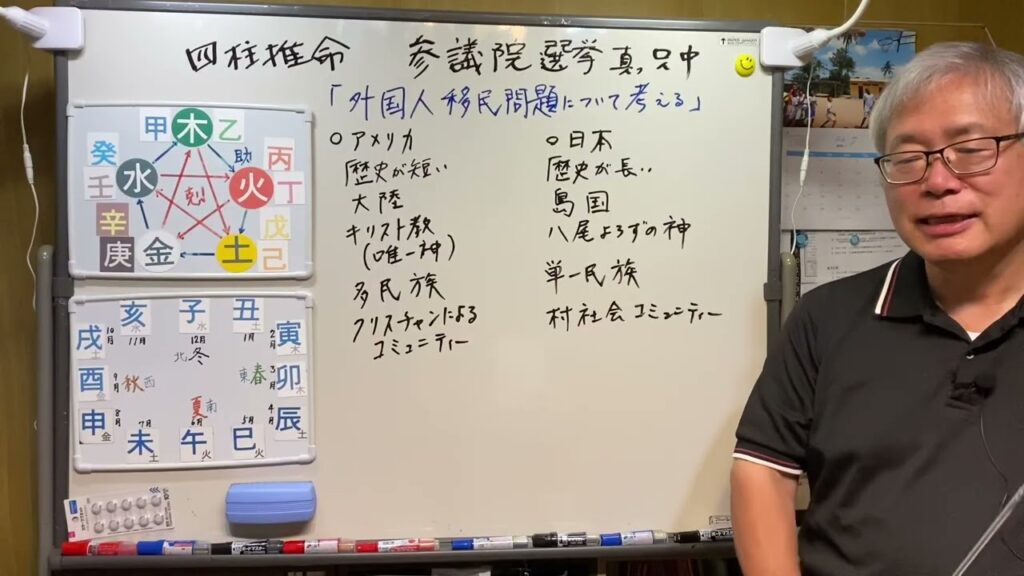 四柱推命 参議院選挙真只中
「外国人移民問題について考える」
○アメリカ
歴史が短い
大陸
キリスト教
(唯一神)
多民族
クリスチャンによる
コミュニティー
○日本
歴史が長い
島国
八尾よろずの神
単一民族
村社会コミュニティー
甲 木 乙
癸 助 丙
壬 水 剋 火 丁
辛 戊
庚 金 土 己
亥水 子水 丑土
11月 12月 1月
戌土 10月 寅木 2月
北 冬
酉金 9月 秋 西 東 春 3月 卯木
夏 南
申金 8月 辰土 4月
7月 6月 5月
未土 午火 巳火